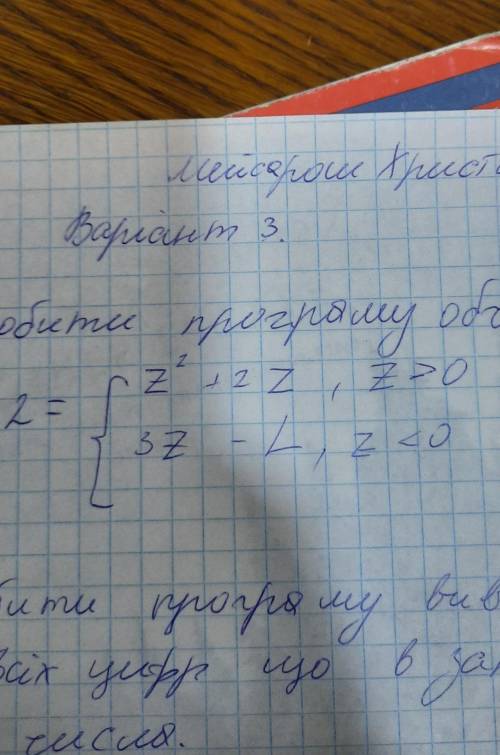 Мейсарош Христ
Варіант 3.
обити програму обч
2 = { z² + 2z , z > 0
3z - L, z < 0
бити програму вив
всіх цифр що в за
числа.